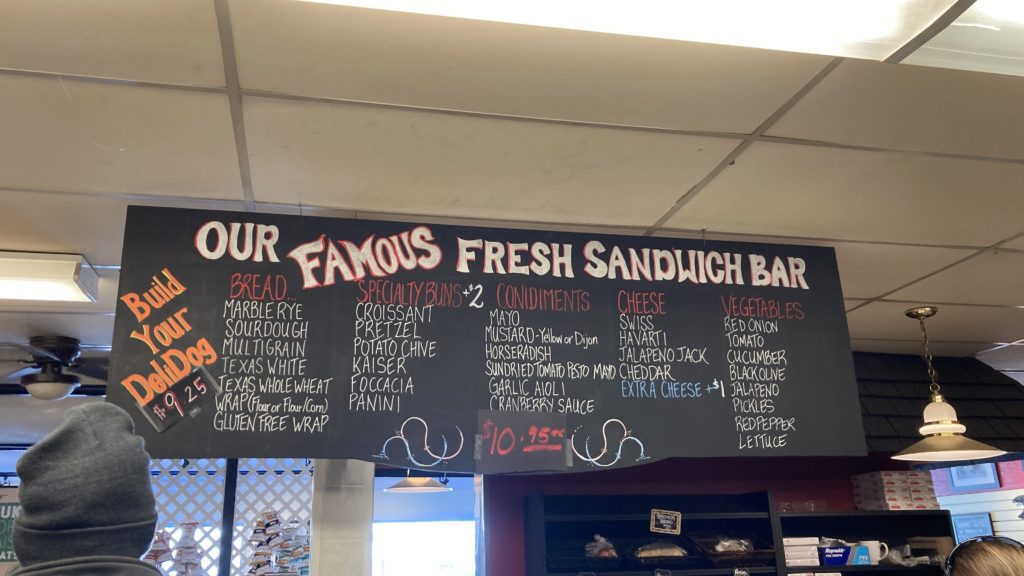 OUR FAMOUS FRESH SANDWICH BAR
Build
Your
DeliDog
$9.25
BREAD...
MARBLE RYE
SOURDOUGH
MULTIGRAIN
TEXAS WHITE
TEXAS WHOLE WHEAT
WRAP (Flour or Flour/Corn)
GLUTEN FREE WRAP
SPECIALTY BUNS +$2
CROISSANT
PRETZEL
POTATO CHIVE
KAISER
FOCCACIA
PANINI
CONIDIMENTS
MAYO
MUSTARD-Yellow or Dijon
HORSERADISH
SUNDRIED TOMATO PESTO MAYO
GARLIC AIOLI
CRANBERRY SAUCE
$10.95
CHEESE
SWISS
HAVARTI
JALAPENO JACK
CHEDDAR
EXTRA CHEESE +$1
VEGETABLES
RED ONION
TOMATO
CUCUMBER
BLACK OLIVE
JALAPENO
PICKLES
RED PEPPER
LETTUCE
Reynolds